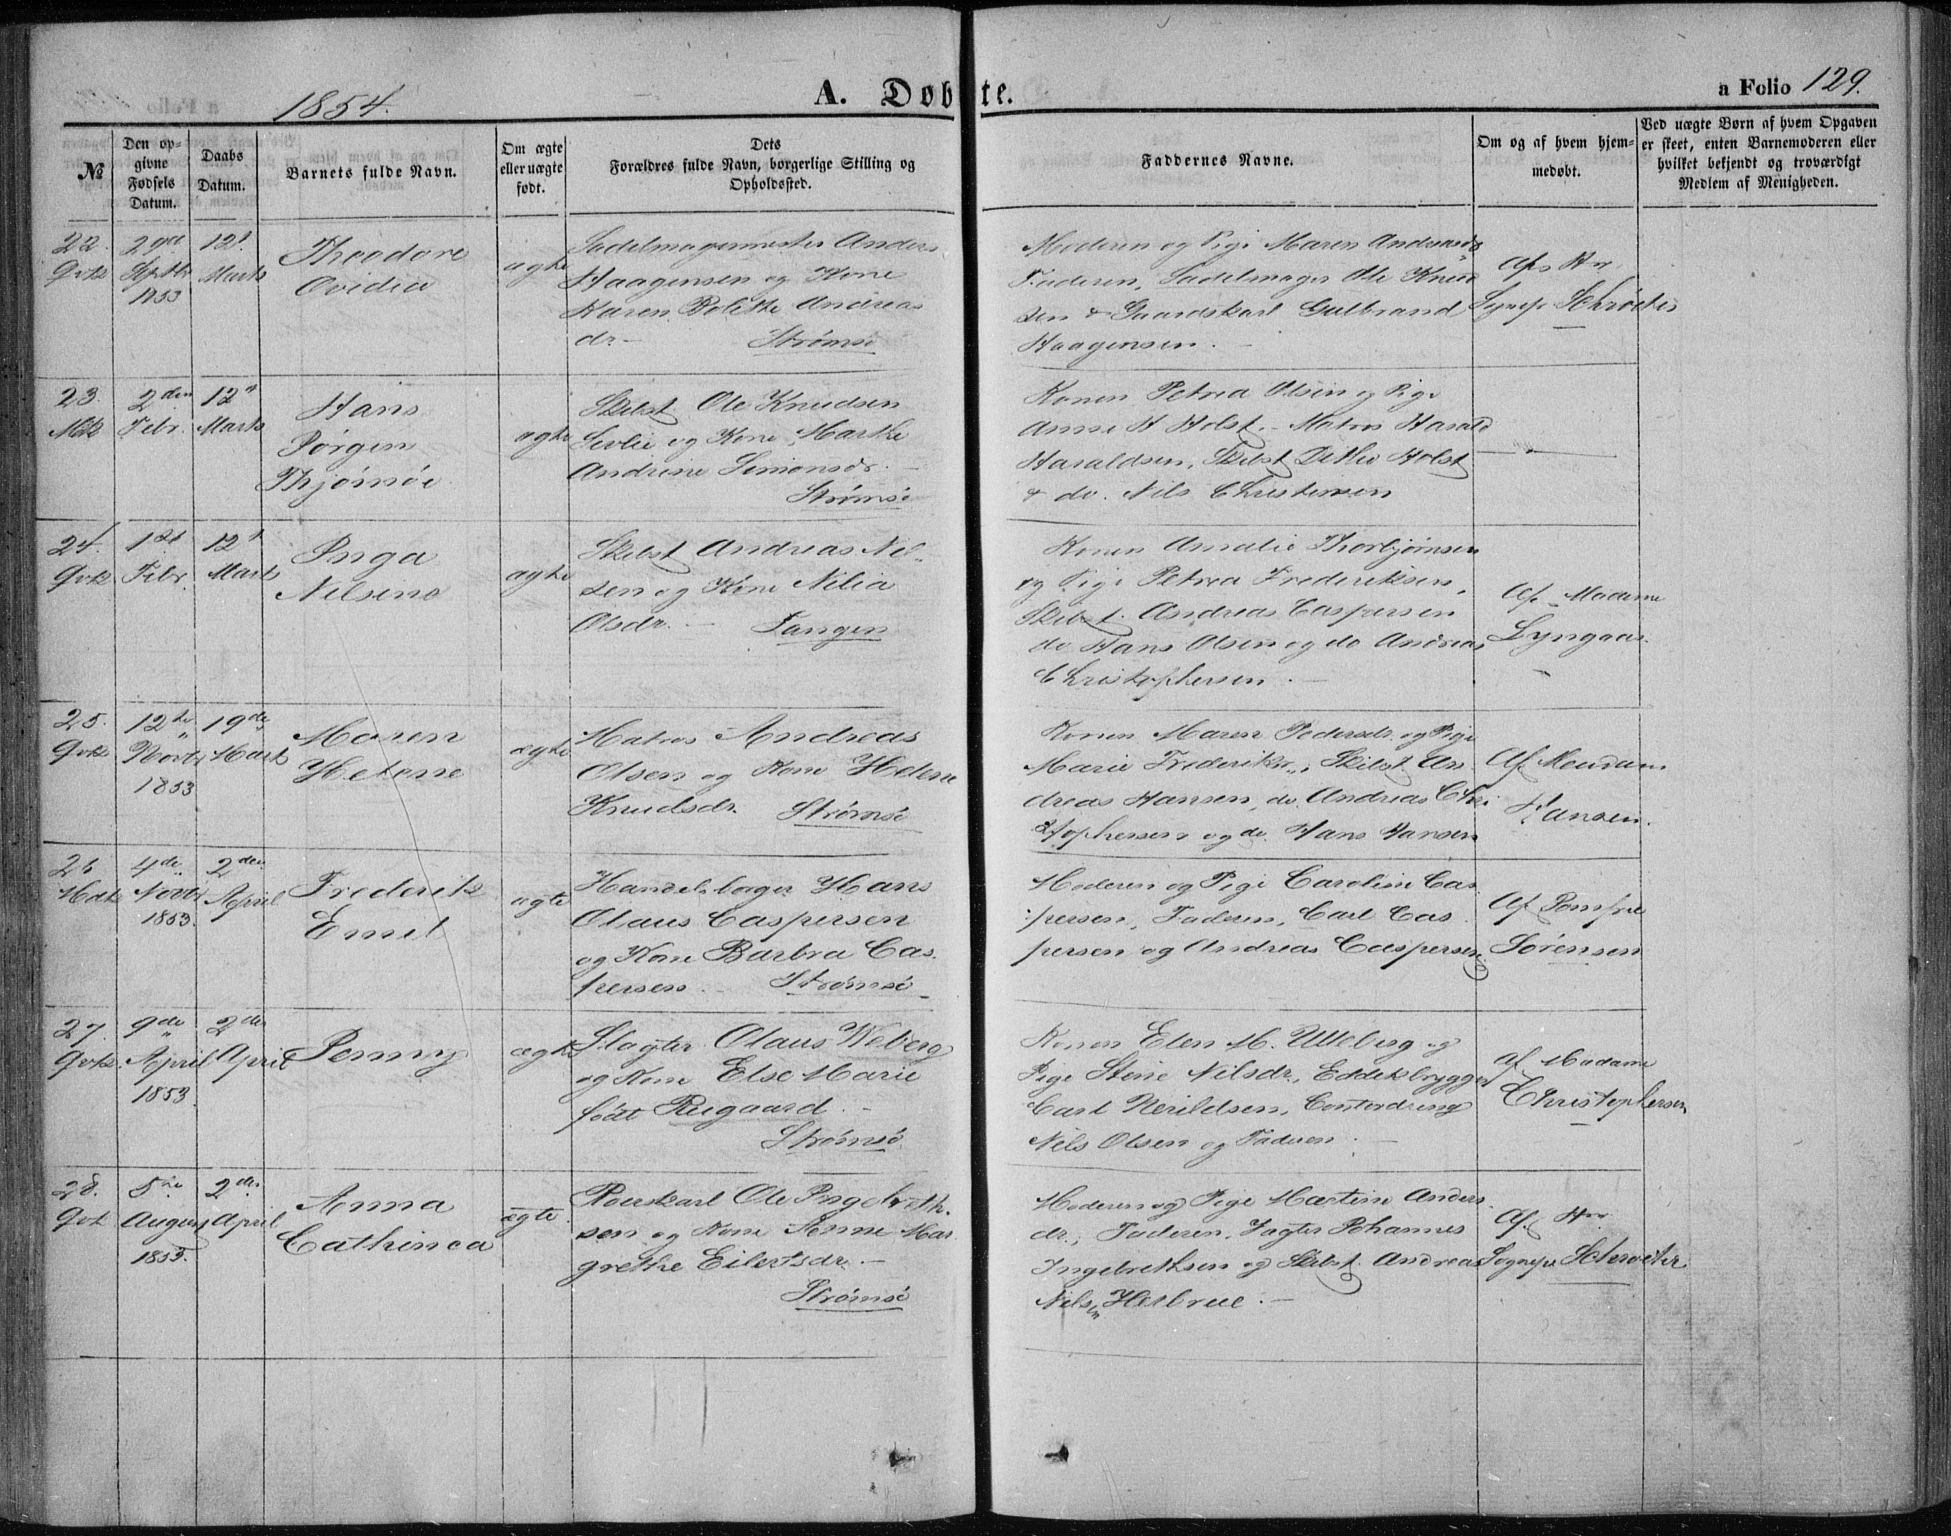 1854.
A. Døbte.
a Folio 129.
№
Den op-
givne
Fødsels
Datum.
Daabs
Datum.
Barnets fulde Navn.
Om ægte
eller uægte
født.
Dets
Forældres fulde Navn, borgerlige Stilling og
Opholdssted.
Faddernes Navne.
Om og af hvem hjem-
medøbt.
Ved uægte Børn af hvem Opgaven
er skeet, enten Barnemoderen eller
hvilket bekjendt og troværdigt
Medlem af Menigheden.
22.
Qvk
1853
12t
Marts
Theodore
Ovidia
ægte
Sadelmagermester Anders
Haagensen og Kone
Karen Bolette Andreas
dr. - Strømsø
Moderen og Pige Maren Andreasdr
Faderen, Sadelmager Ole Knud
sen & Gaardskarl Gulbrand
Haagensen. -
Af Hr
Sognep Schrøeter
23.
Mdk
2den
Febr.
12t
Marts
Hans
Jørgen
Thjømøe
ægte
Skibst. Ole Knudsen
og Kone Marthe
Andrine Simonsdr. -
Strømsø
Konen Petrea Olsen og Pige
Anne H Holst. - Matros Harald
Haraldsen, Skibst Ditlev Holst
& do. Nils Christensen
24.
Qvk
1st
Febr.
12t
Marts
Inga
Nilsine
ægte
Skibst Andreas Nil-
sen og Kone Nilia
Olsdr. - Tangen
Konen Amalie Thorbjørnsen
og Pige Petrea Frederiksen,
Skibst. Andreas Caspersen
do Hans Olsen og do Andreas
Christophersen. -
Af Madame
Lyngaas.
25.
Qvk
12te
Novbr
1853
19de
Marts
Maren
Helene
ægte
Matros Andreas
Olsen og Kone Helene
Knudsdr. Strømsø
Konen Maren Pedersdr. og Pige
Marie Frederiksdr., Skibst. An
dreas Hansen, do. Andreas Chri
stophersen og do. Hans Hansen
Af Madam
Hansen.
26
Mdk
4de
Novbr
1853.
2den
April
Frederik
Emil
ægte
Handelsborger Hans
Olaus Caspersen
og Kone Barbra Cas
persen. Strømsø
Moderen og Pige Caroline Cas
persen, Faderen, Carl Cas
persen og Andreas Caspersen
Af Jomfru
Sørensen
27.
Qvk.
9de
April
1853.
2den
April
Jenny
ægte
Slagter Olaus Weberg
og Kone Else Marie
født Rugaard. -
Strømsø
Konen Elen M. Ulleberg og
Pige Stine Nilsdr., Eddikbrygger
Carl Nerildsen, Contordreng
Nils Olsen og Faderen. -
af Madame
Christophersen
28.
Qvk
5te
August
1853.
2den
April
Anna
Cathinca
ægte
Roerskarl Ole Ingebreth-
sen og Kone Anne Mar
grethe Eilertsdr. -
Strømsø
Moderen og Pige Martine Anders
dr., Faderen, Vagter Johannes
Ingebrethsen og Skibst. Andreas
Nilsen Helbrue. -
Af Hr
Sognep. Schrøeter